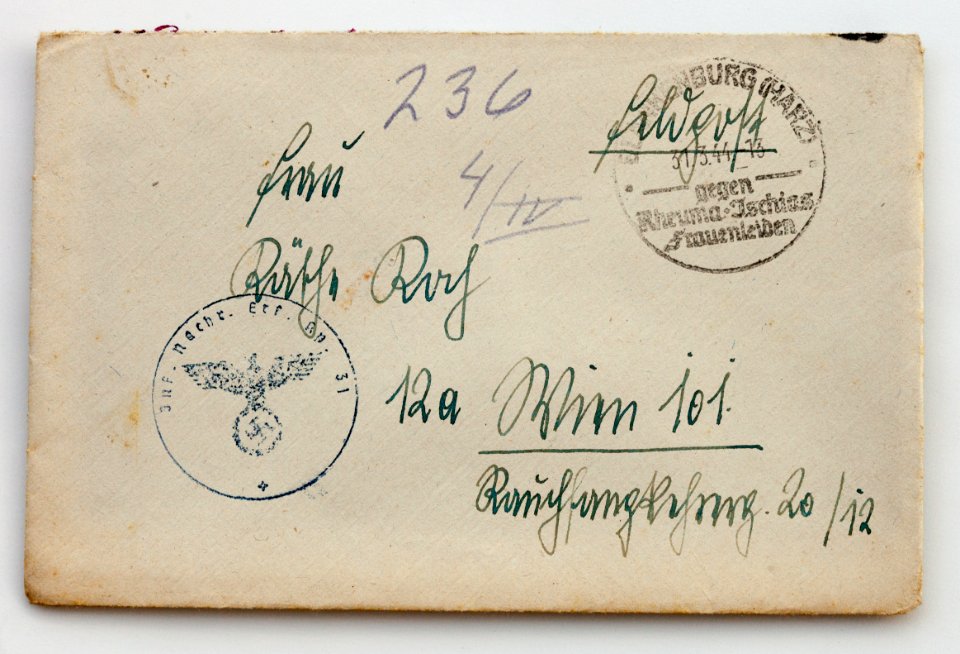 236
Feldpost
BURG (HARZ)
31.3.44-13
gegen
Rheuma-Ischias
Frauenleiden
4/IV
Frau
Käthe Koch
Inf. Nachr. Ers. 31
12a Wien 101.
Rauchfangkehrerg. 20/12